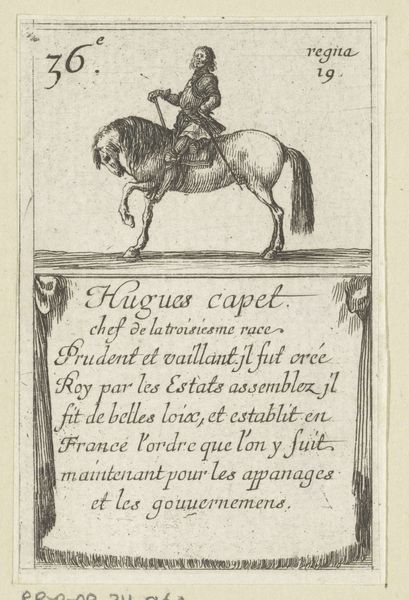 36.e
regna
19.
Hugues capet.
chef de la troisiesme race
Prudent et vaillant jl fut crée
Roy par les Estats assemblez jl
fit de belles loix, et establit en
France l'ordre que l'on y suit
maintenant pour les appanages
et les gouuernemens.